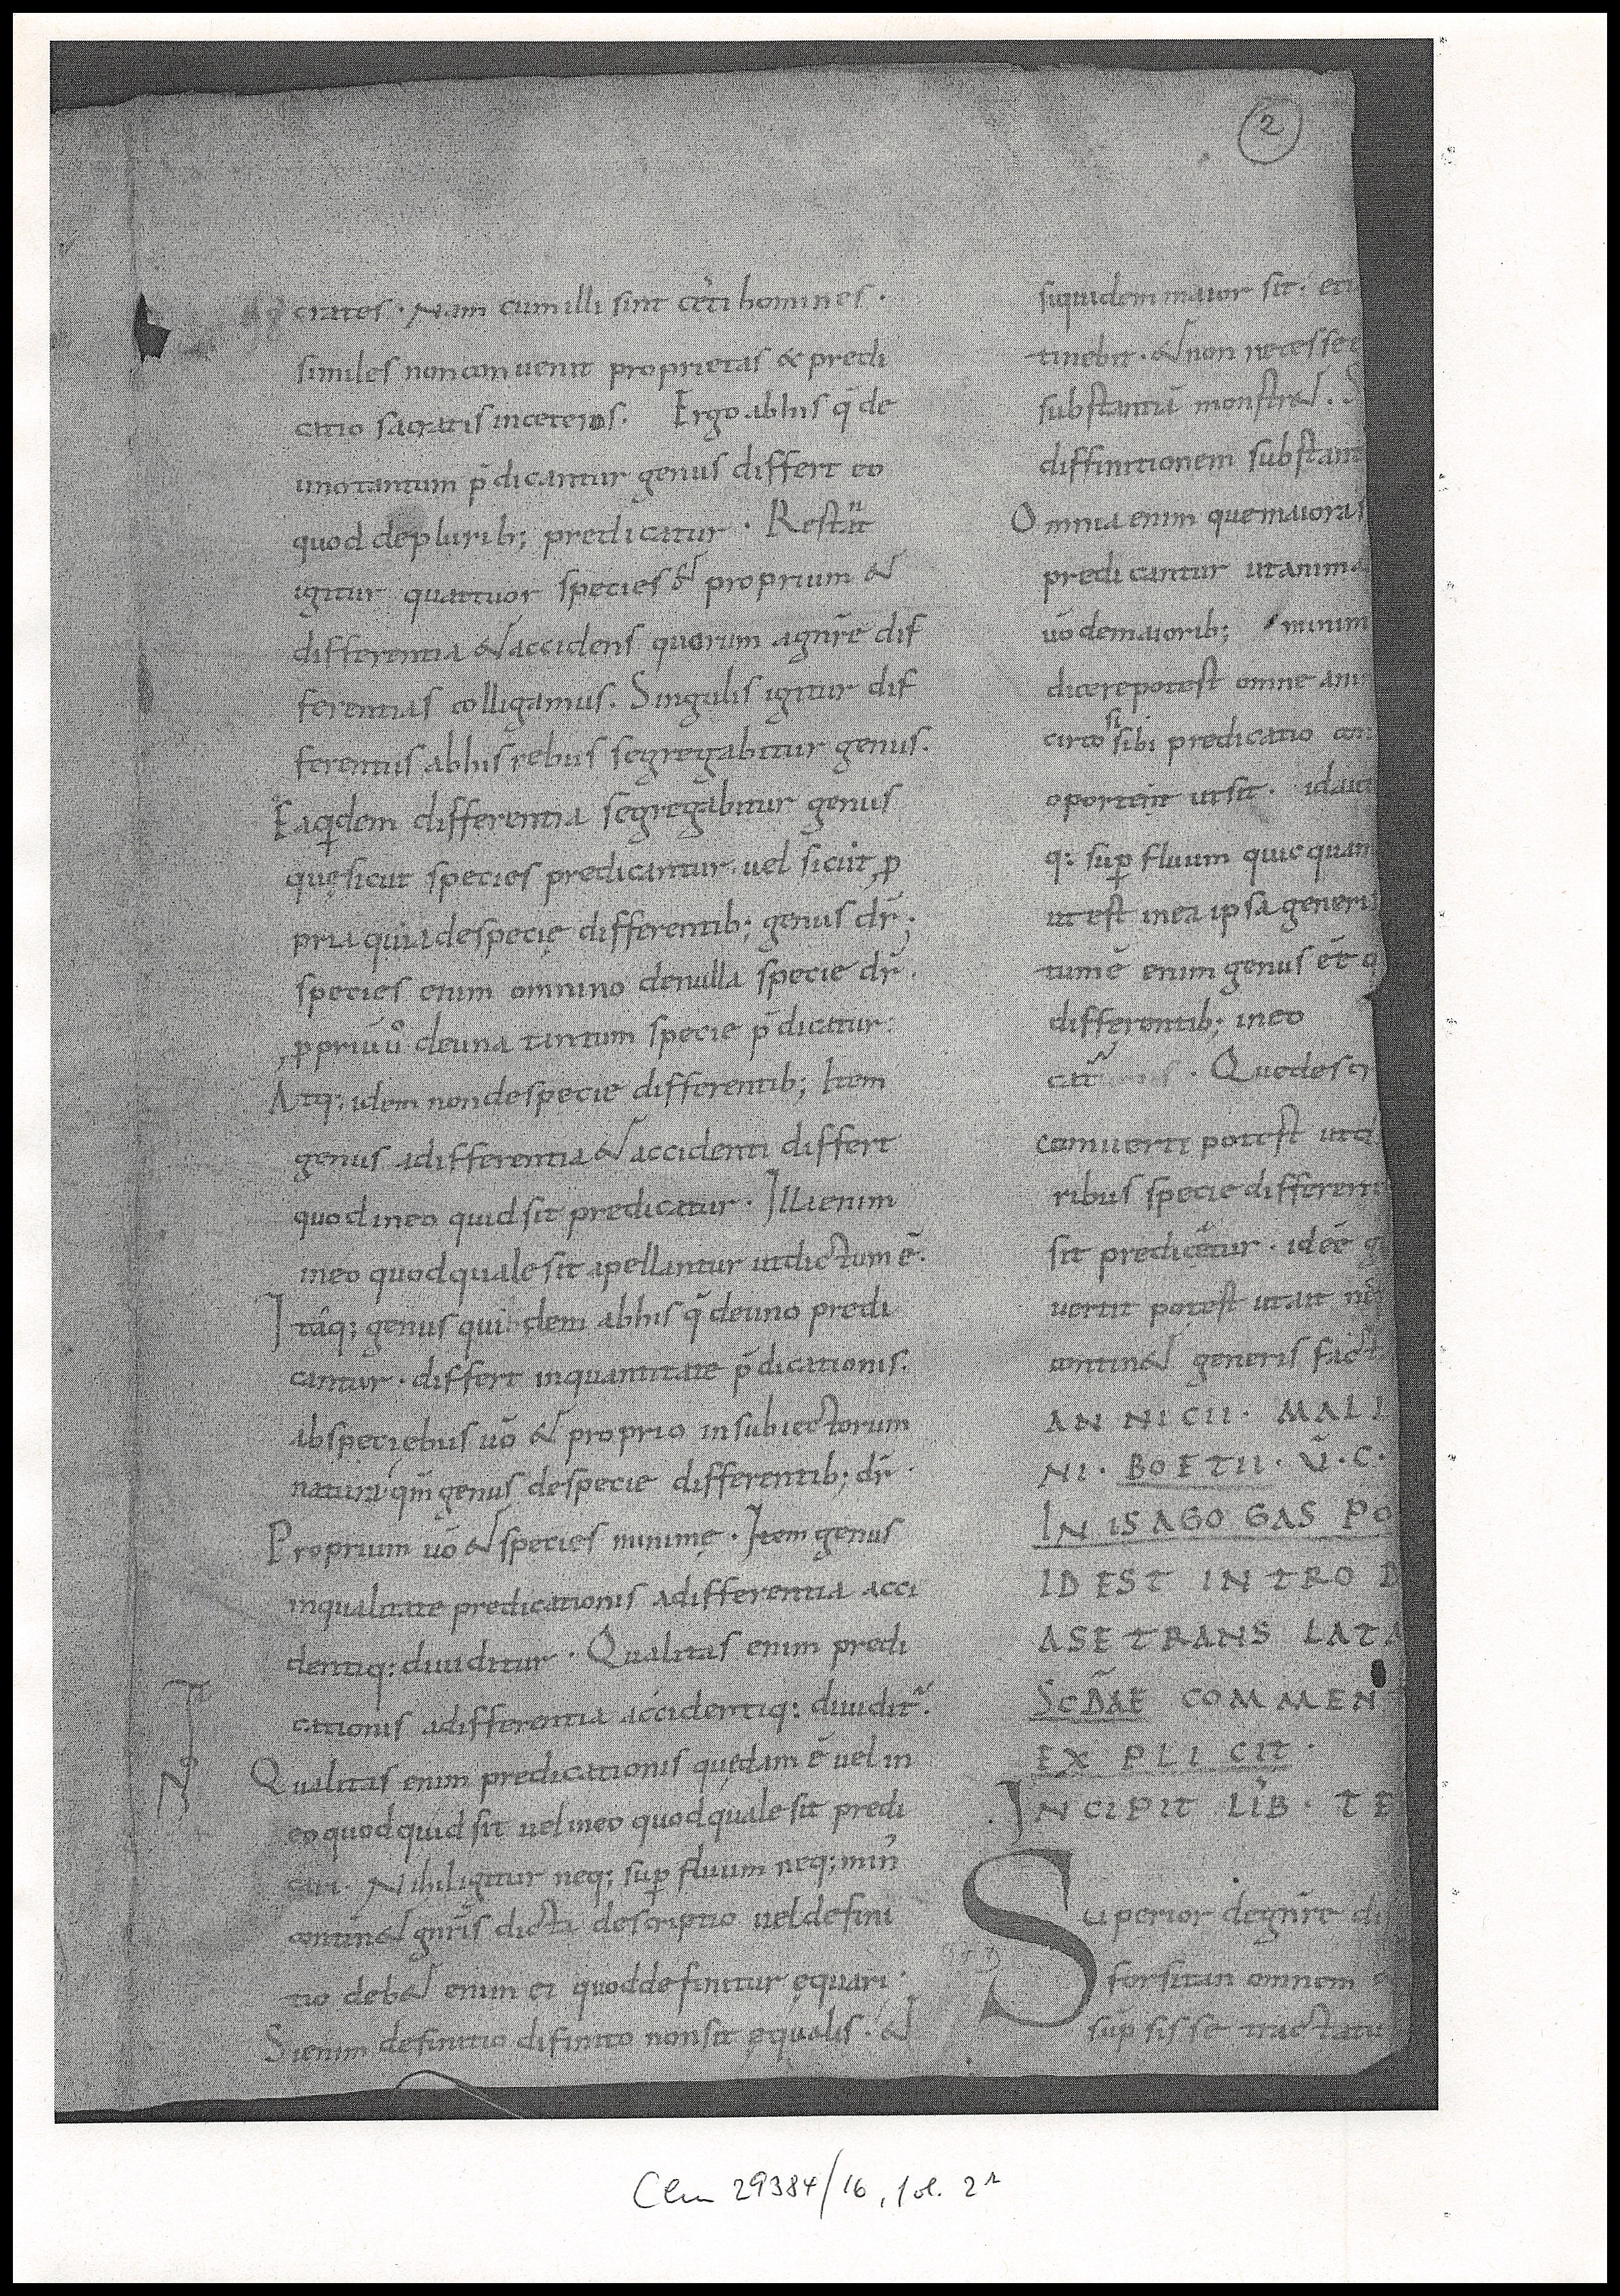 2
crates. Nam cum illi sint cēti homines.
similes non conuenit proprietas & predi
catio socratis in ceteros. Ergo ab his q̄ de
uno tantum p̄dicantur genus differt eo
quod de plurib; predicatur. Restāt
igitur quattuor species & proprium &
differentia & accidens quorum a gnr̄e dif
ferentias colligamus. Singulis igitur dif
ferentiis ab his rebus segregabitur genus.
Ea qdem differentia segregabitur genus
quę sicut species predicantur uel sicut ꝓ
pria quia de specie differentib; genus dr̄;
species enim omnino de nulla specie dr̄.
ꝓpriū ů de una tantum specie p̄dicatur:
Atq; idem non de specie differentib; Item
genus a differentia & accidenti differt
quod in eo quid sit predicatur. Illi enim
in eo quod quale sit apellantur ut dictum ē.
Itaq; genus quidem ab his q̄ de uno predi
cantur. differt in quantitate p̄dicationis.
ab speciebus uō & proprio in subiectorum
natura qm̄ genus de specie differentib; dr̄.
Proprium uō & species minimę. Item genus
in qualitate predicationis a differentia acci
dentiq: diuiditur. Qualitas enim predi
cationis a differentia accidentiq: diuidit̃.
Qualitas enim predicationis quędam ē uel in
eo quod quid sit uel in eo quod quale sit predi
cari. Nihil igitur neq; suꝑfluum neq; min'
contin& gnr̄is dicta descriptio uel defini
tio deb& enim ei quod definitur ęquari.
Si enim definitio difinito non sit ęqualis. &
IN
siquidem maior sit. eti
tinebit. & non necesse e
substantiā monstr&. S
diffinitionem substant
Omnia enim que maiora s
predicantur ut anima
uō de maiorib; minim
dicere potest omne ani
circo si sibi predicatio con
oporteit ut sit. id aut
q: suꝑfluum quicquam
ut est in ea ipsa generis
tum ē enim genus eē q
differentib; in eo
cat̃. Que descri
conuerti potest ut q
ribus specie different
sit predicetur. id eē g
uertit potest ut ait
contin& generis fact
ANNICII. MALI
NI. BOETII. Ū.C.
IN ISAGOGAS PO
ID EST INTROD
A SE TRANSLATA
SCD̄AE COMMENT
EXPLICIT.
INCIPIT LIB̄. TE
Superior de gnr̄e di
forsitan omnem
sup̄sisse tractatu
Clm 29384/16, fol. 2r